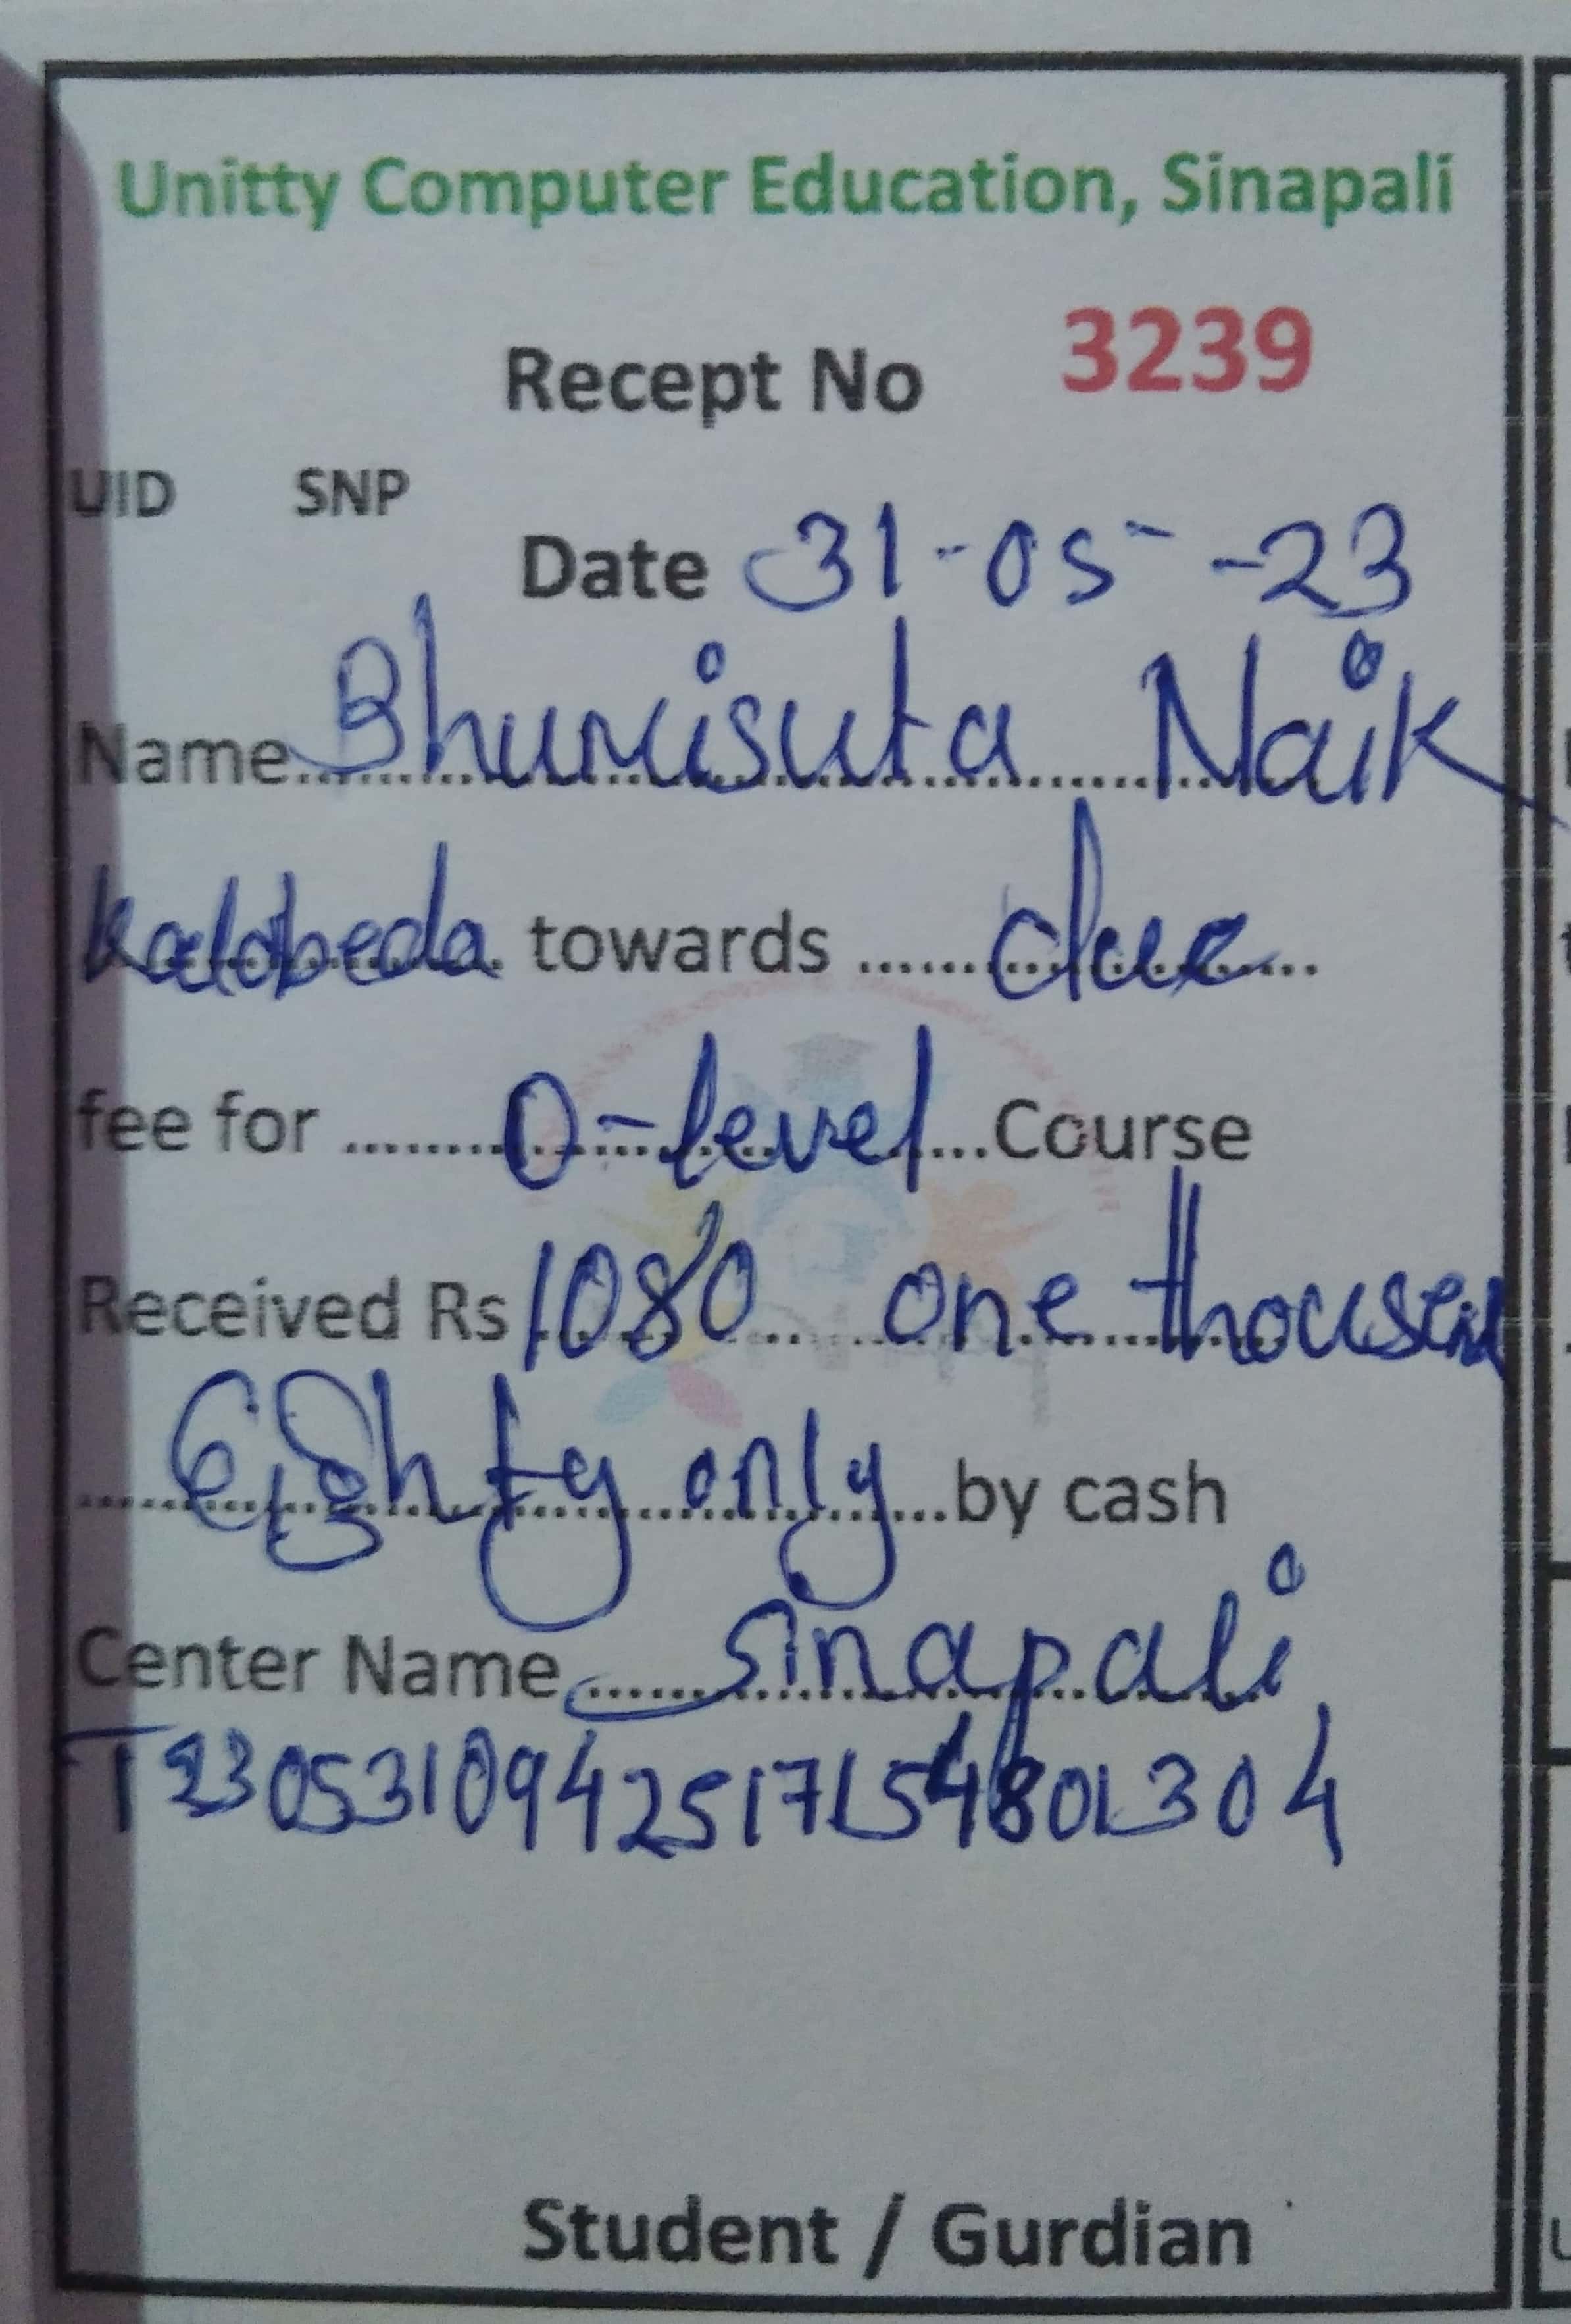 Unitty Computer Education, Sinapali
Recept No 3239
UID SNP
Date 31-05-23
Name Bhumisuta Naik
towards due
fee for O-level Course
Received Rs 1080 one thousand
Eighty only by cash
Center Name Sinapali
T2305310942517154801304
Student / Gurdian